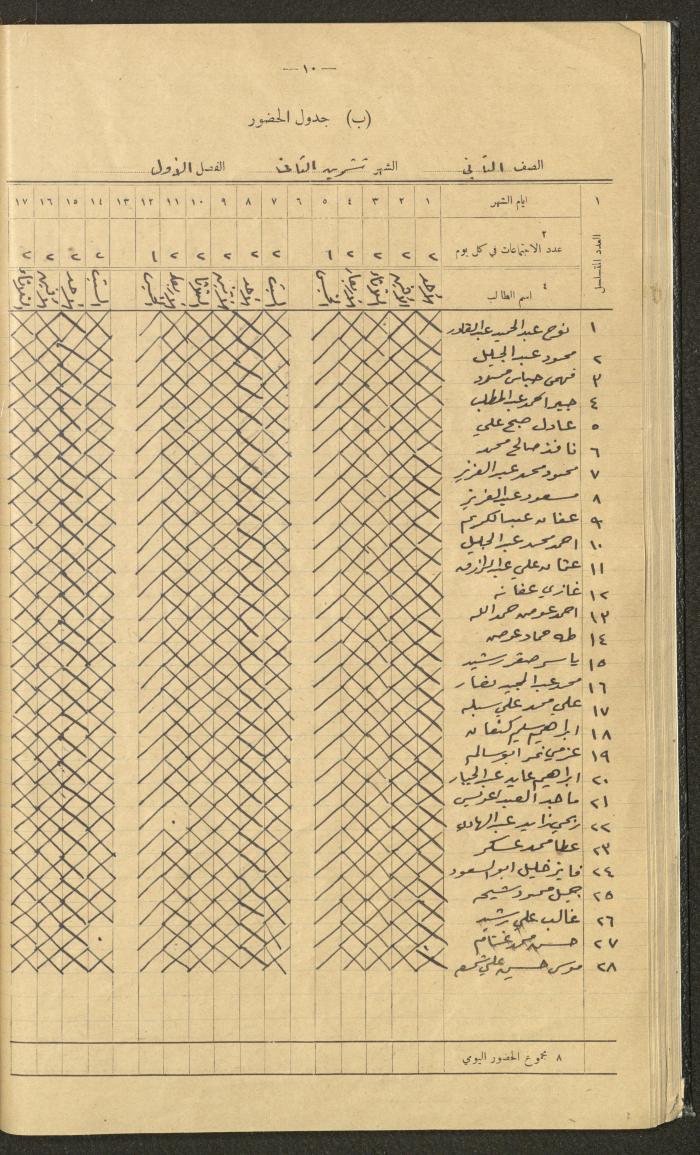 — ١٠ —
(ب) جدول الحضور
الصف الثاني الشهر تشرين الثاني الفصل الأول
١ ايام الشهر ١ ٢ ٣ ٤ ٥ ٦ ٧ ٨ ٩ ١٠ ١١ ١٢ ١٣ ١٤ ١٥ ١٦ ١٧
العدد المتسلسل
٢ عدد الاجتماعات في كل يوم ٢ ٢ ٢ ٢ ١ ٢ ٢ ٢ ٢ ٢ ١ ٢ ٢ ٢ ٢
٤ اسم الطالب الأحد الاثنين الثلاثاء الأربعاء الخميس السبت الأحد الاثنين الثلاثا الأربعاء الخميس السبت الأحد الاثنين الثلاثاء
١ نوح عبد الحميد عبد القادر
٢ محمود عبد الجليل
٣ فهمي عباس
٤ احمد عبد المطلب
٥ عادل صبح علي
٦ نافذ صالح محمد
٧ محمود محمد عبد العزيز
٨ مسعود عبد العزيز
٩ عبد الكريم
١٠ احمد محمد عبد الجليل
١١ عثمان علي عبد الرازق
١٢ غازي عفانه
١٣ احمد عوض حمد الله
١٤ طه حماد عوض
١٥ ياسر صقر رشيد
١٦ محمد عبد المجيد
١٧ علي محمد علي
١٨ ابراهيم سليم كنعان
١٩ عزمي نمر ابو سالم
٢٠ ابراهيم عايد عبد الجبار
٢١ ماجد العبد
٢٢ ربحي زايد عبد الهادي
٢٣ عطا محمد عسكر
٢٤ فايز خليل ابو السعود
٢٥ جميل محمود شيحه
٢٦ غالب علي رشيد
٢٧ حسن محمد غنام
٢٨ موسى حسين علي
٨ مجموع الحضور اليومي